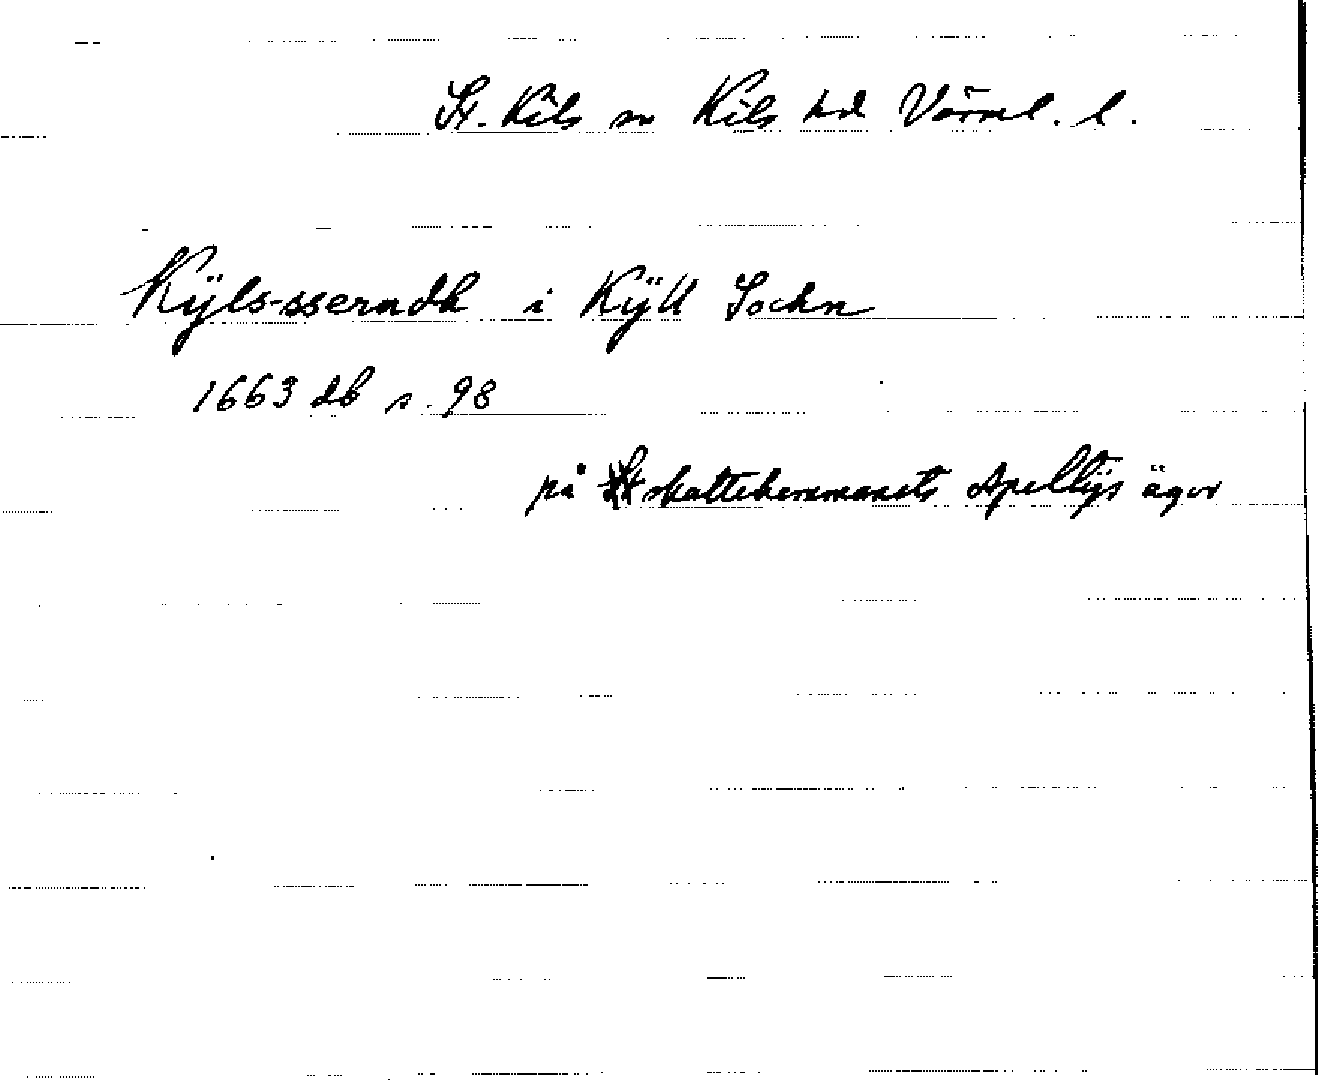 St. Kils sn Kils hd Värml. l.
Kÿls-sserudh i Kÿll Sochn
1663 db s. 98
på skattehemmanets Apeltÿs ägor